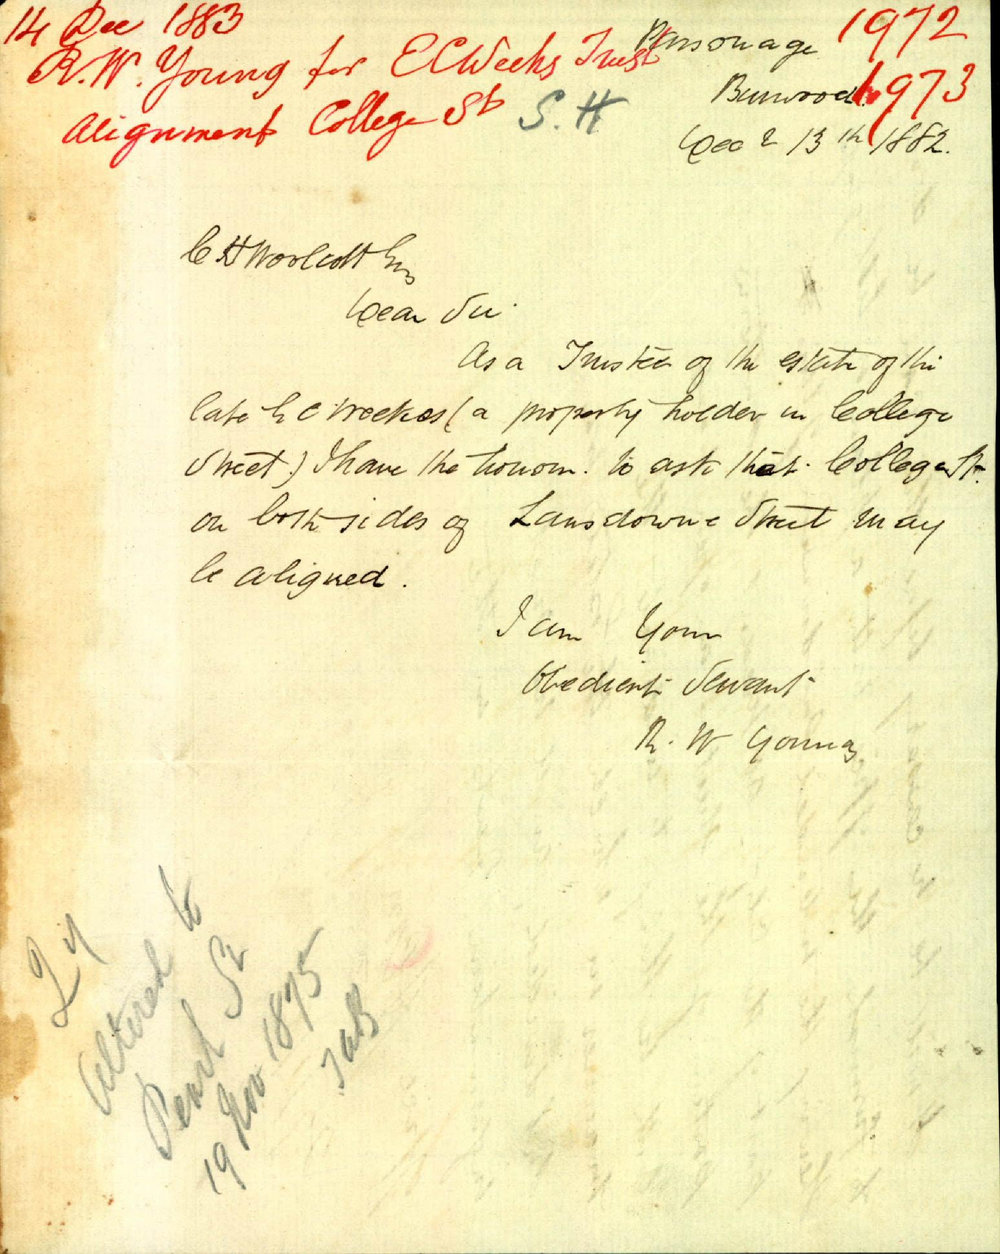 14 Dec 1883
R.W. Young for E C Weekes Trust
Alignment College St
S. H
1972
1973
Parsonage
Burwood
Decr 13th 1882.
C H Woolcott Esq
Dear Sir
As a Trustee of the estate of the
late E C Weekes (a property holder in College
Street.) I have the honour. to ask that College St.
on both sides of Lansdowne Street may
be aligned.
I am Your
Obedient Servant
R. W Young
Qy
altered to
Pearl St
19 Nov 1875